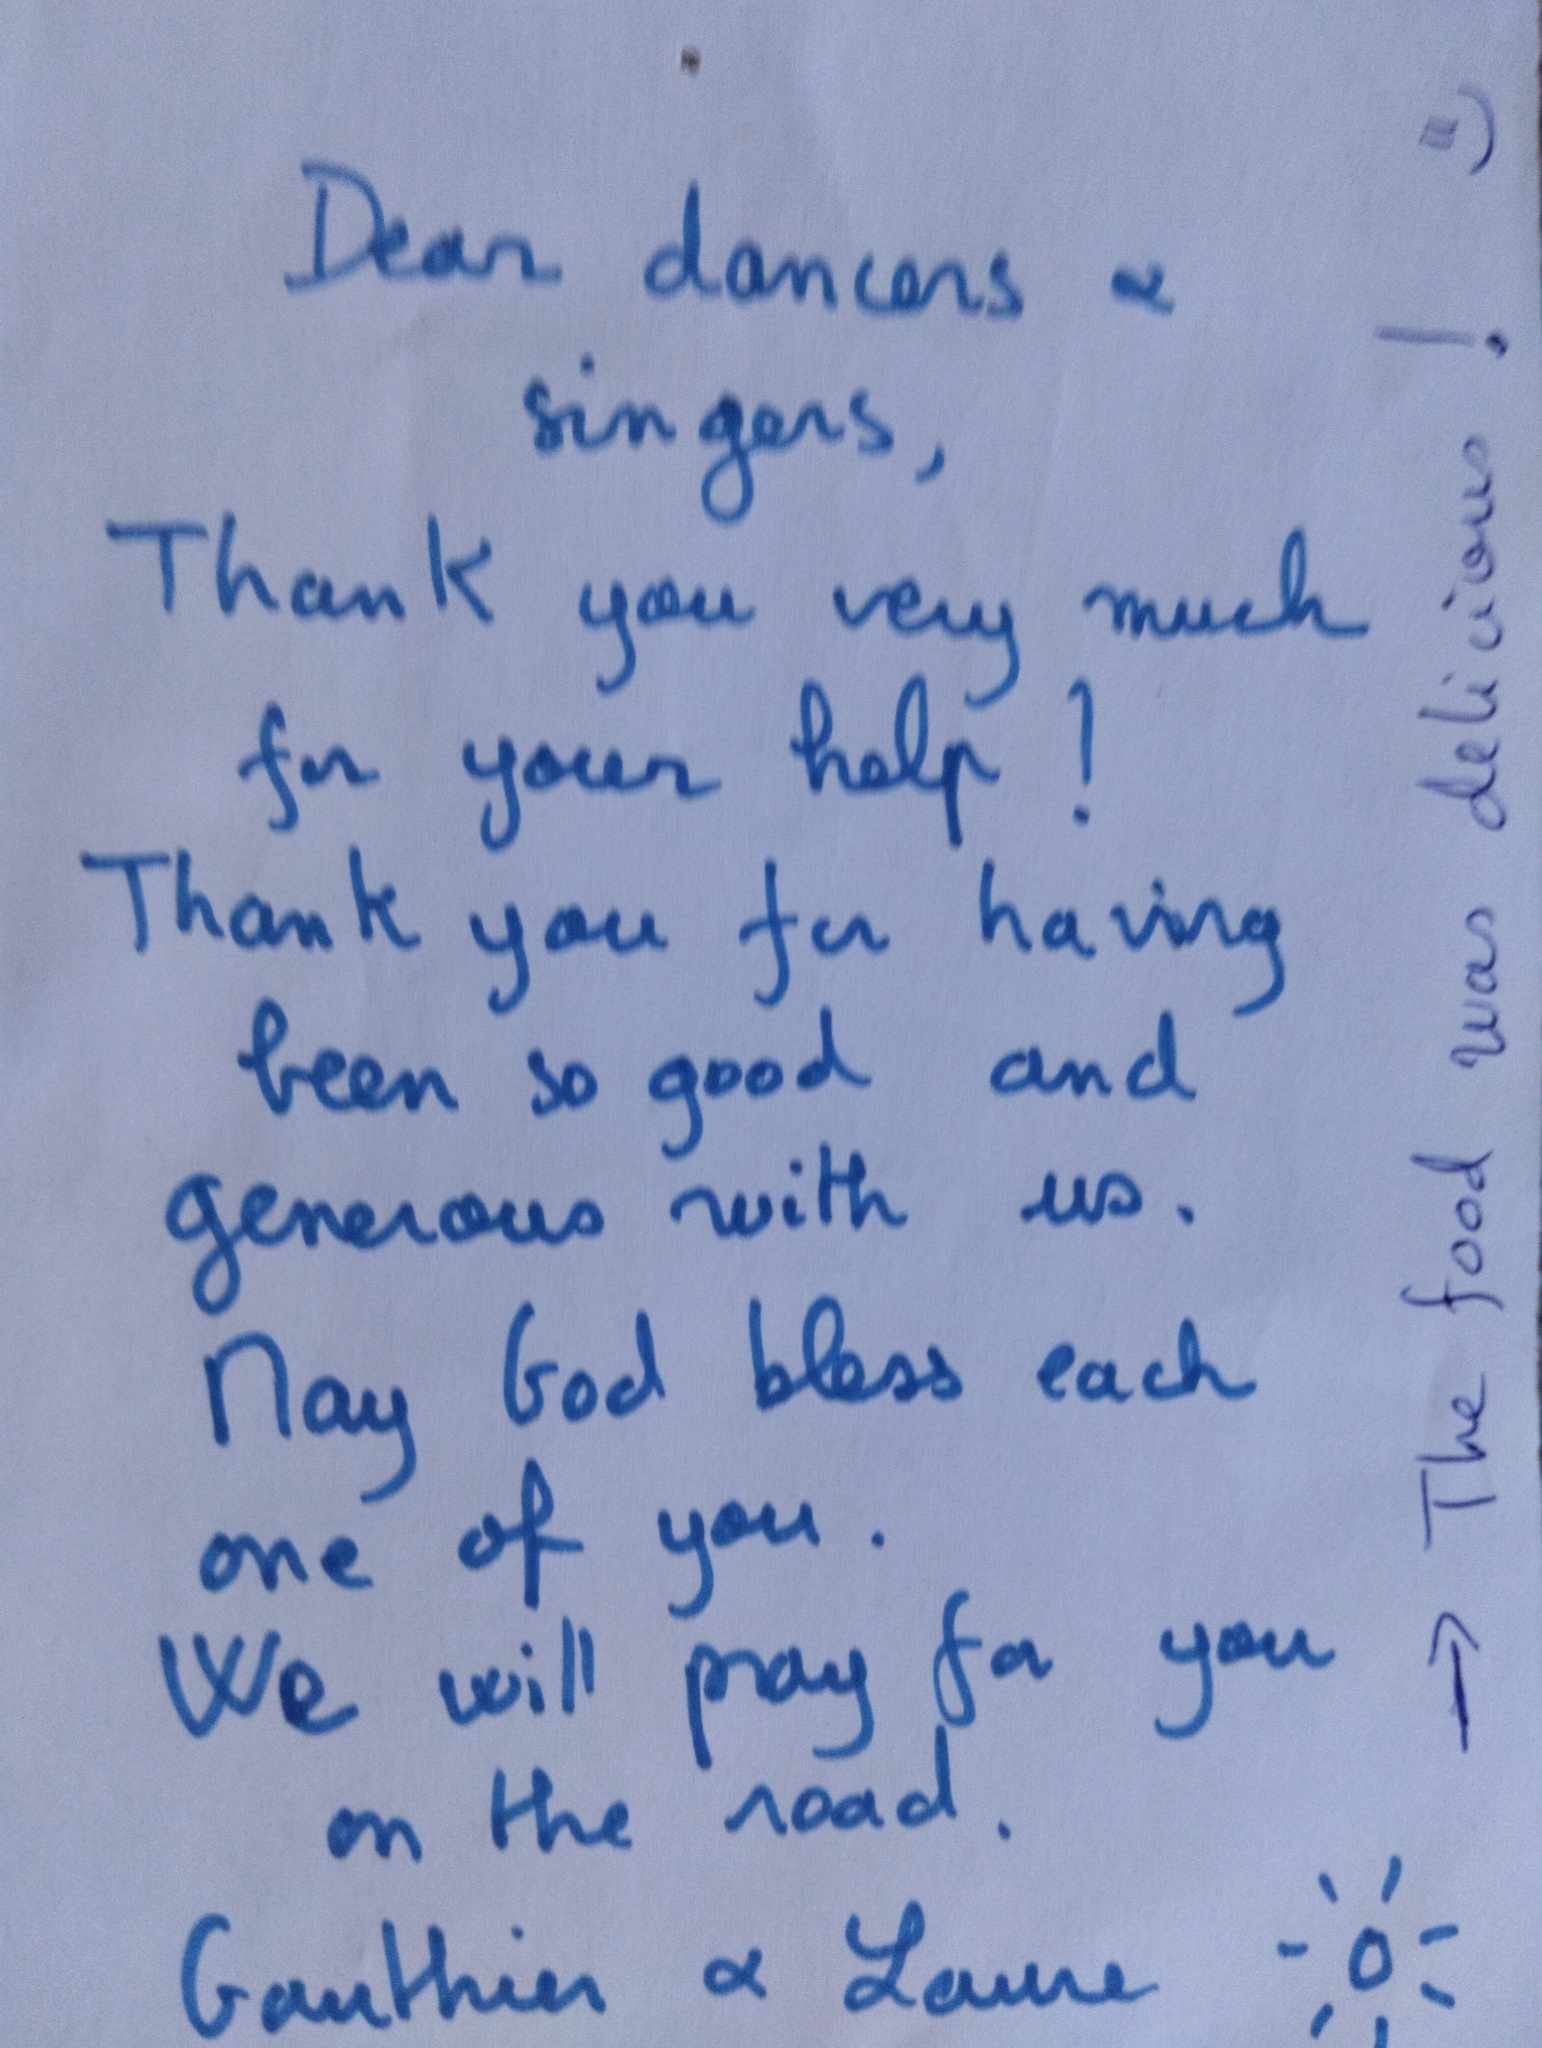 Dear dancers &
singers,
Thank you very much
for your help !
Thank you for having
been so good and
generous with us.
May God bless each
one of you.
We will pray for you
on the road.
Gauthier & Laure
→ The food was delicious ! =)